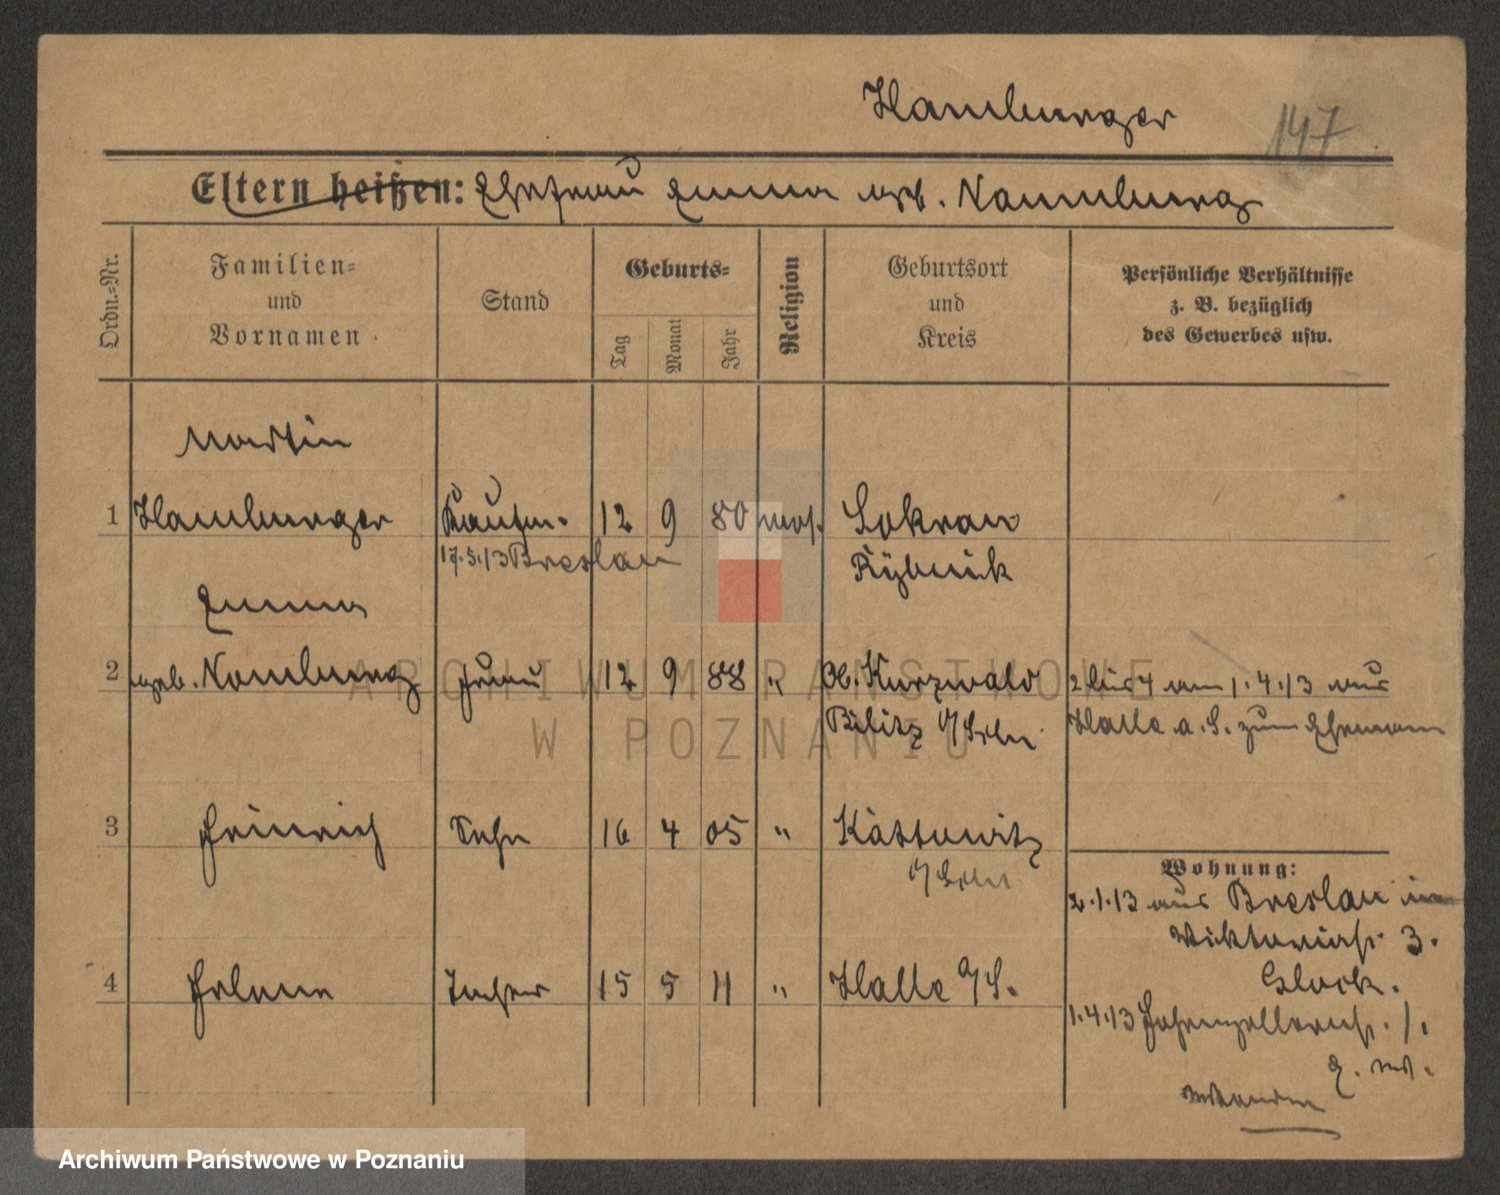 Hamburger
147
Eltern heißen: Ehefrau Emma geb. Naumburg
Ordn.-Nr.
Familien-
und
Vornamen
Stand
Geburts-
Tag
Monat
Jahr
Religion
Geburtsort
und
Kreis
Persönliche Verhältnisse
z. B. bezüglich
des Gewerbes usw.
Martin
1 Hamburger Kaufm. 12 9 80 mos. Sokrau
17.5.13 Breslau Rybnik
Emma
2 geb. Naumburg Frau 12 9 88 " Ob. Kurzwald 2 bis 4 am 1.4.13 aus
Bilitz O/Schl. Halle a. S. zum Ehemann
3 Heinrich Sohn 16 4 05 " Kattowitz
O/Schl.
Wohnung:
2.1.13 aus Breslau in
Viktoriastr. 3.
4 Helene Tochter 15 5 11 " Halle a/S. Glock.
1.4.13 Hohenzollernstr. 1.
ARCHIWUM PAŃSTWOWE
W POZNANIU
Archiwum Państwowe w Poznaniu